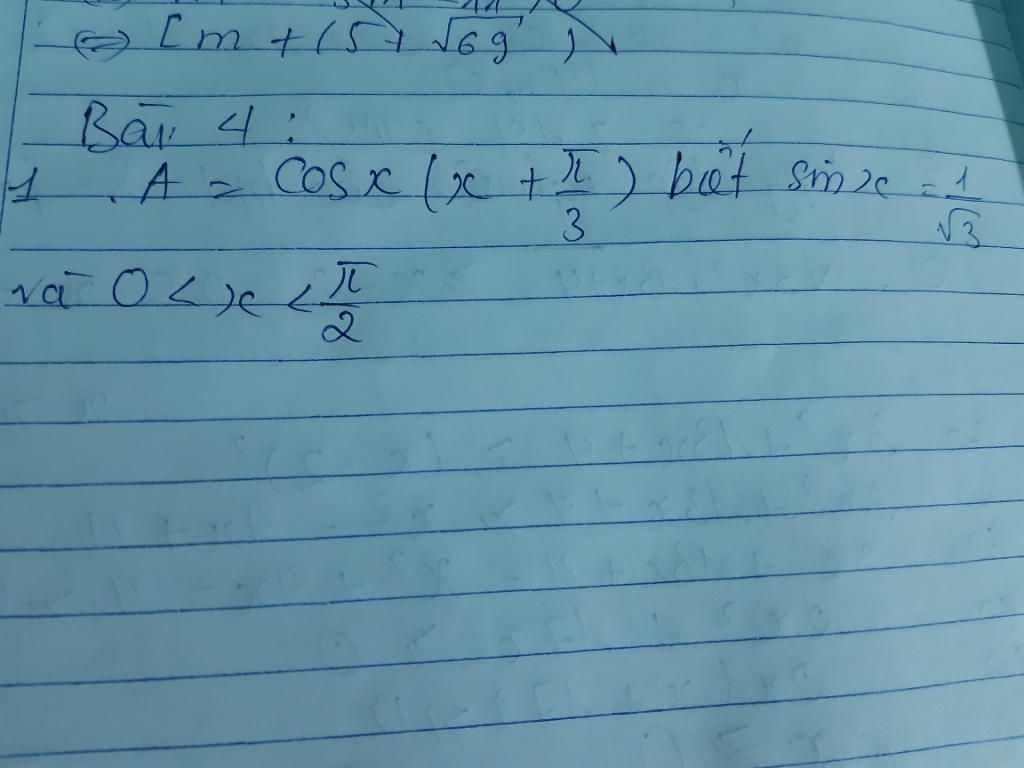 ⇔ [m + (5 + √69)
Bài 4 :
1 . A = Cosx (x + π/3) biết sinx = 1/√3
và 0 < x < π/2